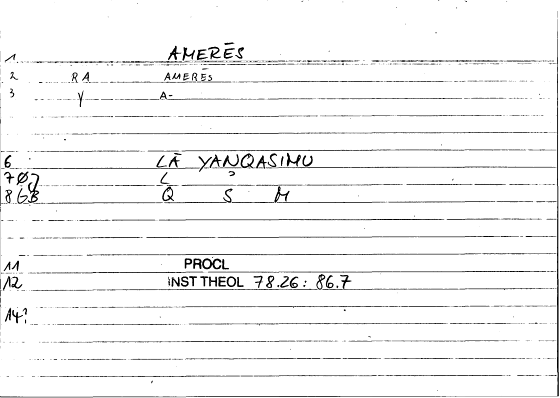 1 AMERĒS
2 RA AMERĒS
3 Y A-
6 LĀ YANQASIMU
7 L ʾ
8 Q S M
11 PROCL
12 INST THEOL 78.26: 86.7
14?